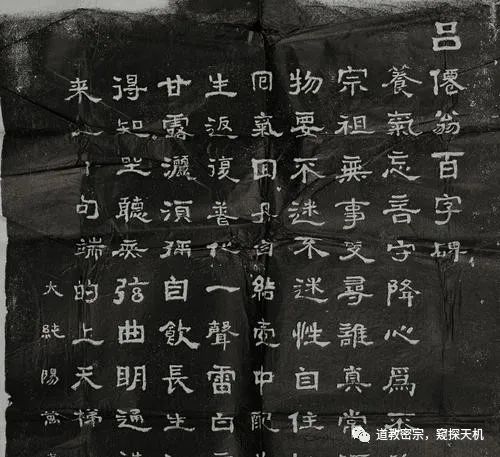 吕僊翁百字碑
養氣忘言守降心爲不
宗祖無事更尋誰真常
物要不迷不迷性自住
囘氣囬丹自結壺中配
生返復普化一聲雷白
甘露灑須彌自飲長生
得知坐聽無弦曲明通
来二十句端的上天梯
大純陽
道教密宗，窥探天机